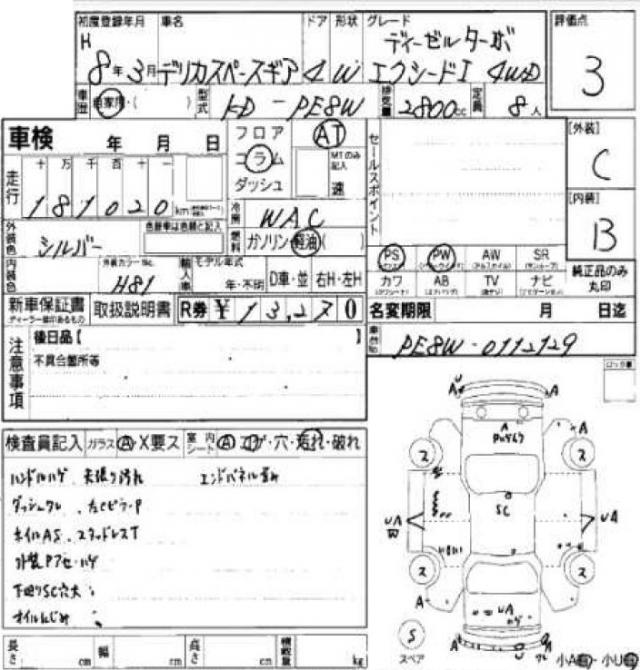 初度登録年月 車名 ドア 形状 グレード 評価点
H 8年 3月 デリカスペースギア 4 W ディーゼルターボ エクシードI 4WD 3
車歴 自家用・( ) 型式 KD-PE8W 排気量 2800cc 定員 8人
車検 年 月 日 フロア コラム ダッシュ AT MTのみ記入 速 セールスポイント [外装] C
走行 十 万 千 百 十 一 181020 km
冷房 WAC [内装] B
外装色 シルバー 色替車は色替と記入 燃料 ガソリン・軽油( )
PS PW AW SR
カワ AB TV ナビ 純正品のみ丸印
内装色 外装カラーNo. H81 輸入車 モデル年式 年・不明 D車・並 右H・左H
新車保証書 取扱説明書 R券 ¥13,270 名変期限 月 日迄
ディーラー捺印あるもの
車台No. PE8W-0112129
注意事項 後日品【
不具合箇所等
検査員記入 ガラス A・X要ス 室内シート A コゲ・穴・汚れ・破れ
ハンドルハゲ 天張り汚れ エンドパネル歪み
ホイルAS、スタッドレスT
下廻りSC穴大
オイルにじみ
A A
A
ス ス
SC
UA
W
ス ス
UA
A A
S
スペア 小A・小U
長さ cm 幅 cm 高さ cm 積載量 kg